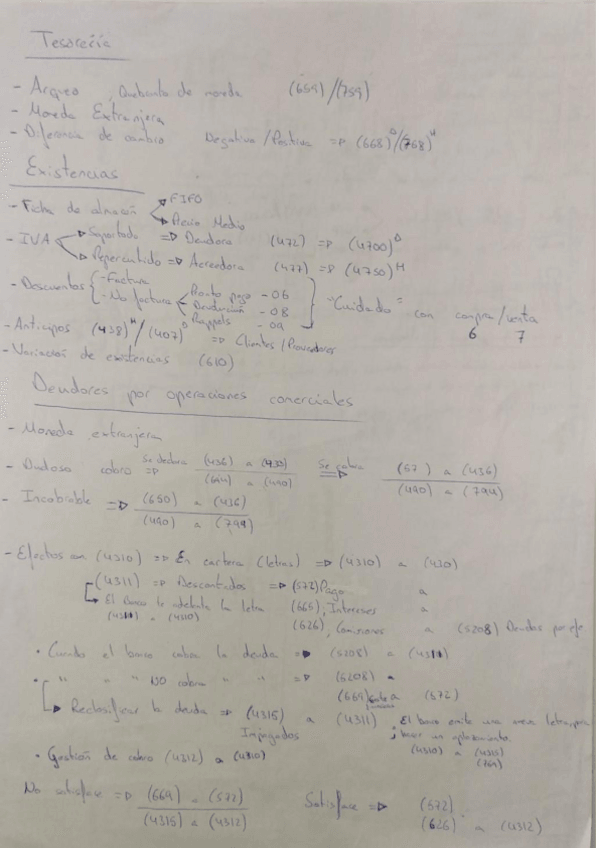 Tesorería
- Arqueo, Quebranto de moneda (659)/(759)
- Moneda Extranjera
- Diferencia de cambio Negativa/Positiva => (668)ᴰ/(768)ᴴ
Existencias
- Ficha de almacén FIFO
Precio Medio
- IVA Soportado => Deudora (472) => (4700)ᴰ
Repercutido => Acreedora (477) => (4750)ᴴ
- Descuentos - Factura
- No factura Pronto pago - 06
Devolución - 08
Rappels - 09
"Cuidado" con compra/venta
6 7
- Anticipos (438)ᴴ/(407)ᴰ => Clientes/Proveedores
- Variación de existencias (610)
Deudores por operaciones comerciales
- Moneda extranjera
- Dudoso cobro Se declara => (436) a (430) Se cobra => (57) a (436)
(694) a (490) (490) a (794)
- Incobrable => (650) a (436)
(490) a (794)
- Efectos com (4310) => En cartera (letras) => (4310) a (430)
(4311) => Descontados => (572) Pago a
El banco te adelanta la letra (665), Intereses a
(4311) a (4310) (626), Comisiones a (5208) Deudas por efe
• Cuando el banco cobra la deuda => (5208) a (4311)
• " " " NO cobra " " => (5208) a
(669) a (572)
Reclasificar la deuda => (4315) a (4311)
Impagados
El banco emite una nueva letra para
hacer un aplazamiento.
(4310) a (4315)
(769)
• Gestión de cobro (4312) a (4310)
No satisface => (669) a (572) Satisface => (572)
(4315) a (4312) (626) a (4312)